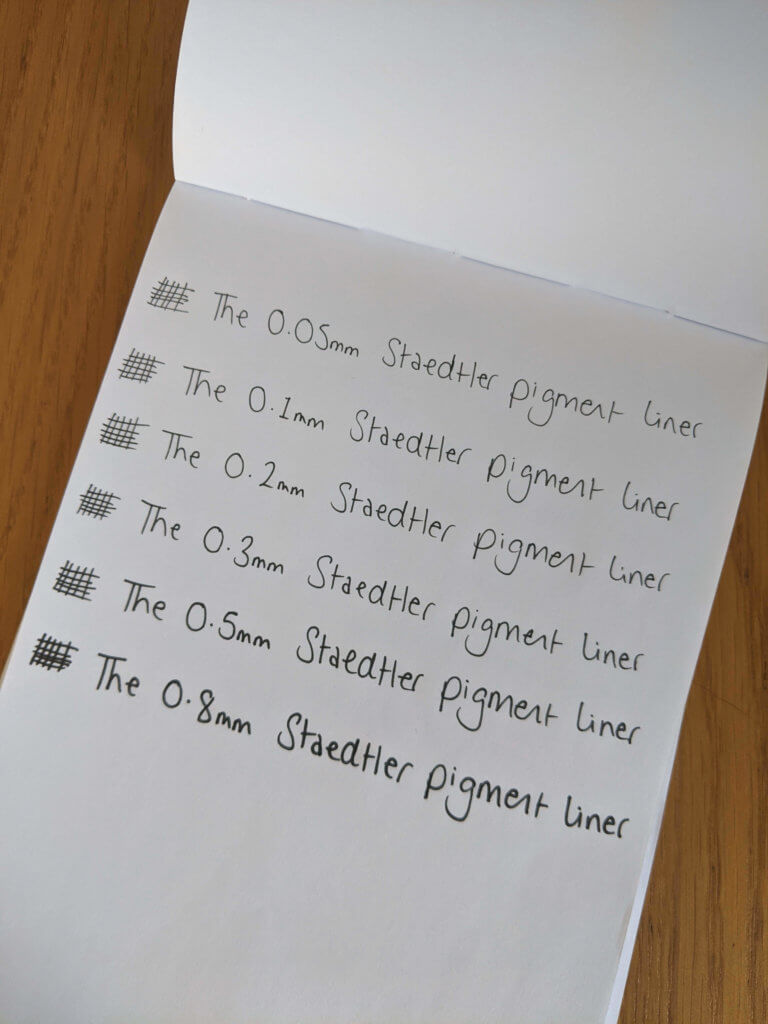 The 0.05mm Staedtler pigment liner
The 0.1mm Staedtler pigment liner
The 0.2mm Staedtler pigment liner
The 0.3mm Staedtler pigment liner
The 0.5mm Staedtler pigment liner
The 0.8mm Staedtler pigment liner